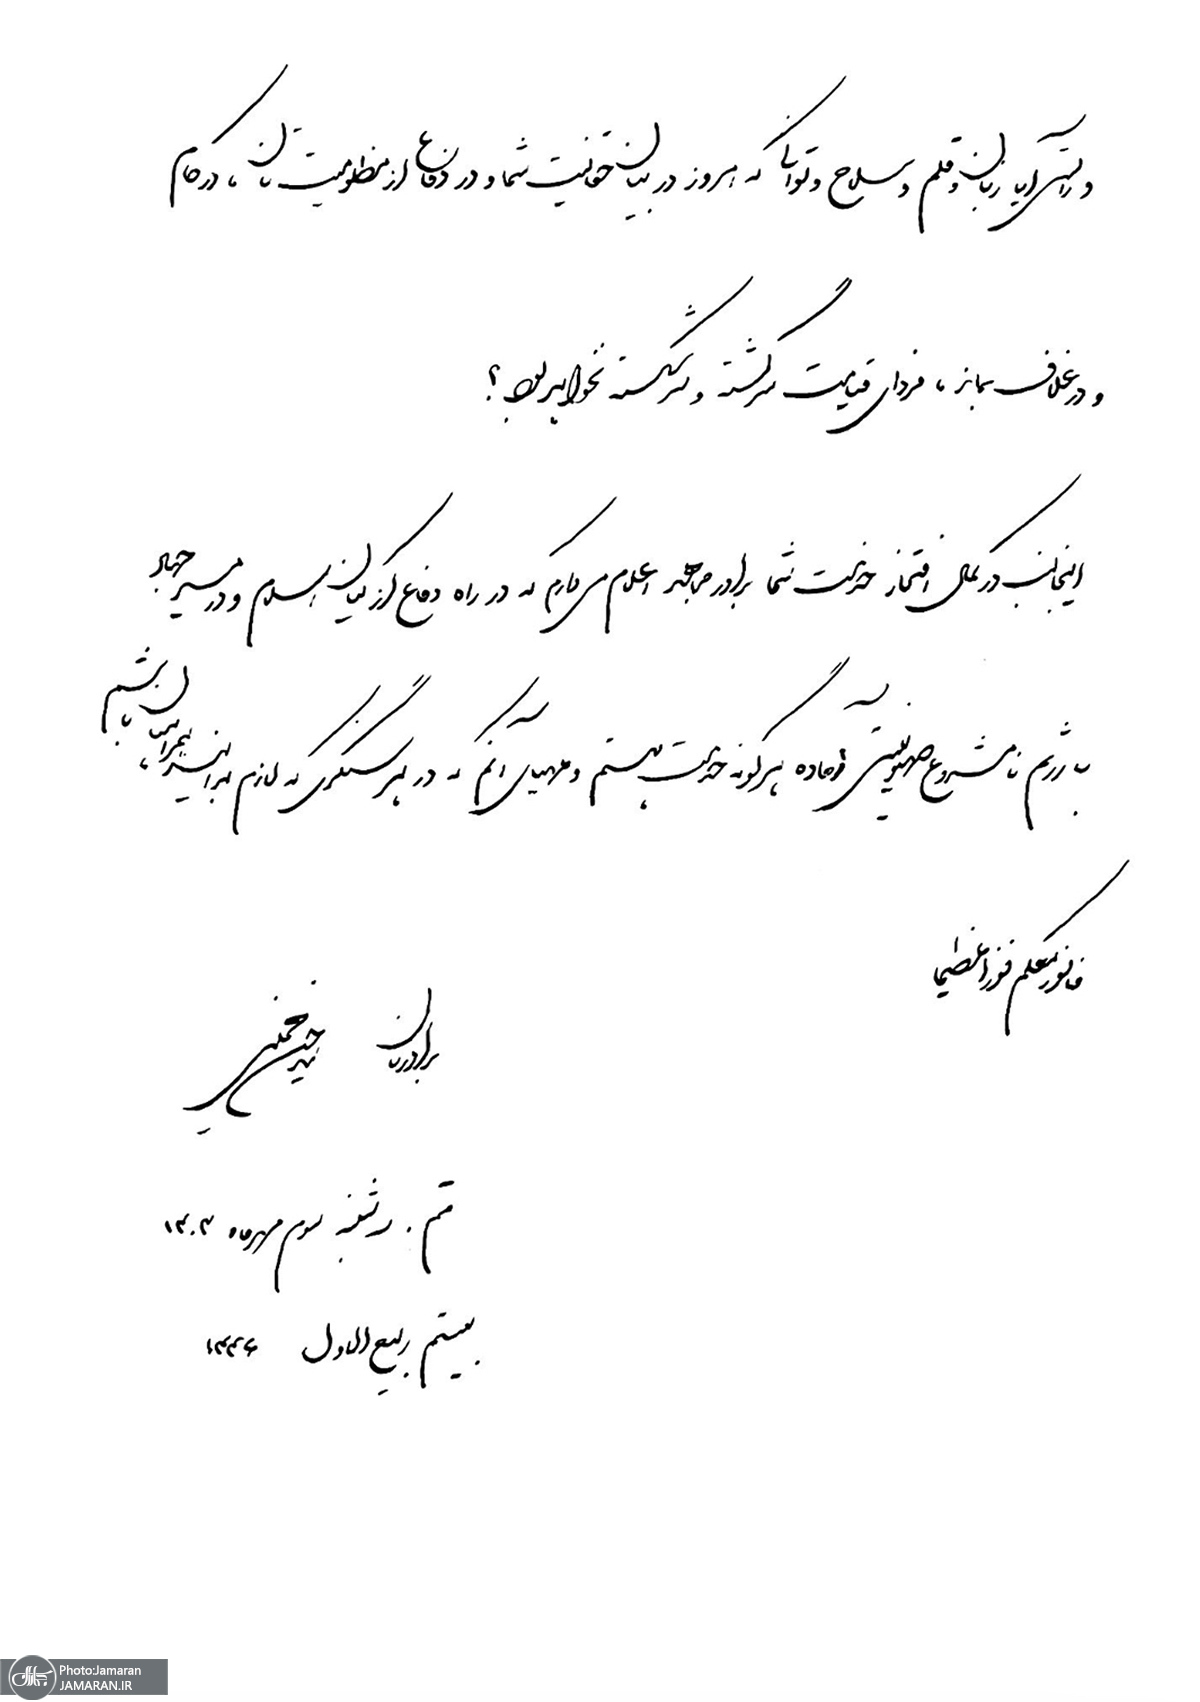 و راستی آیا زبان و قلم و سلاح و توانی که امروز در بیان حقانیت شما و در دفاع از مظلومیت تان ، در کام
و در غلاف بماند ، فردای قیامت سرگشته و سرشکسته نخواهد بود ؟
اینجانب در کمال افتخار خدمت شما برادر مجاهد اعلام می دارم که در راه دفاع از کیان اسلام و در مسیر جهاد
با رژیم نامشروع صهیونیستی آماده هرگونه خدمت هستم و مهیای آنم که در هر سنگری که لازم بدانید، همراهتان باشم
فافوز معکم فوزا عظیما
برادرتان سید حسن خمینی
قم . سه شنبه سوم مهرماه ۱۴۰۳
بیستم ربیع الاول ۱۴۴۶
Photo:Jamaran
JAMARAN.IR